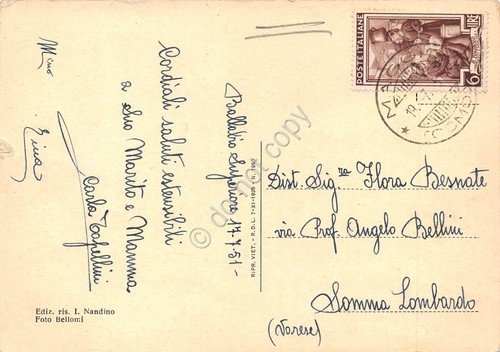 Ballabio Superiore 17.7.51 -
Cordiali saluti estensibili
a Suo Marito e Mamma
Carla Tapellini
Gina
Mino
POSTE ITALIANE
LIRE 6
COMO
Dist. Sig.ra Flora Besnate
via Prof. Angelo Bellini
Somma Lombardo
(Varese)
RIPR. VIET. - R.D.L. 7-XI-1925 - N.
Ediz. ris. I. Nandino
Foto Bellomi